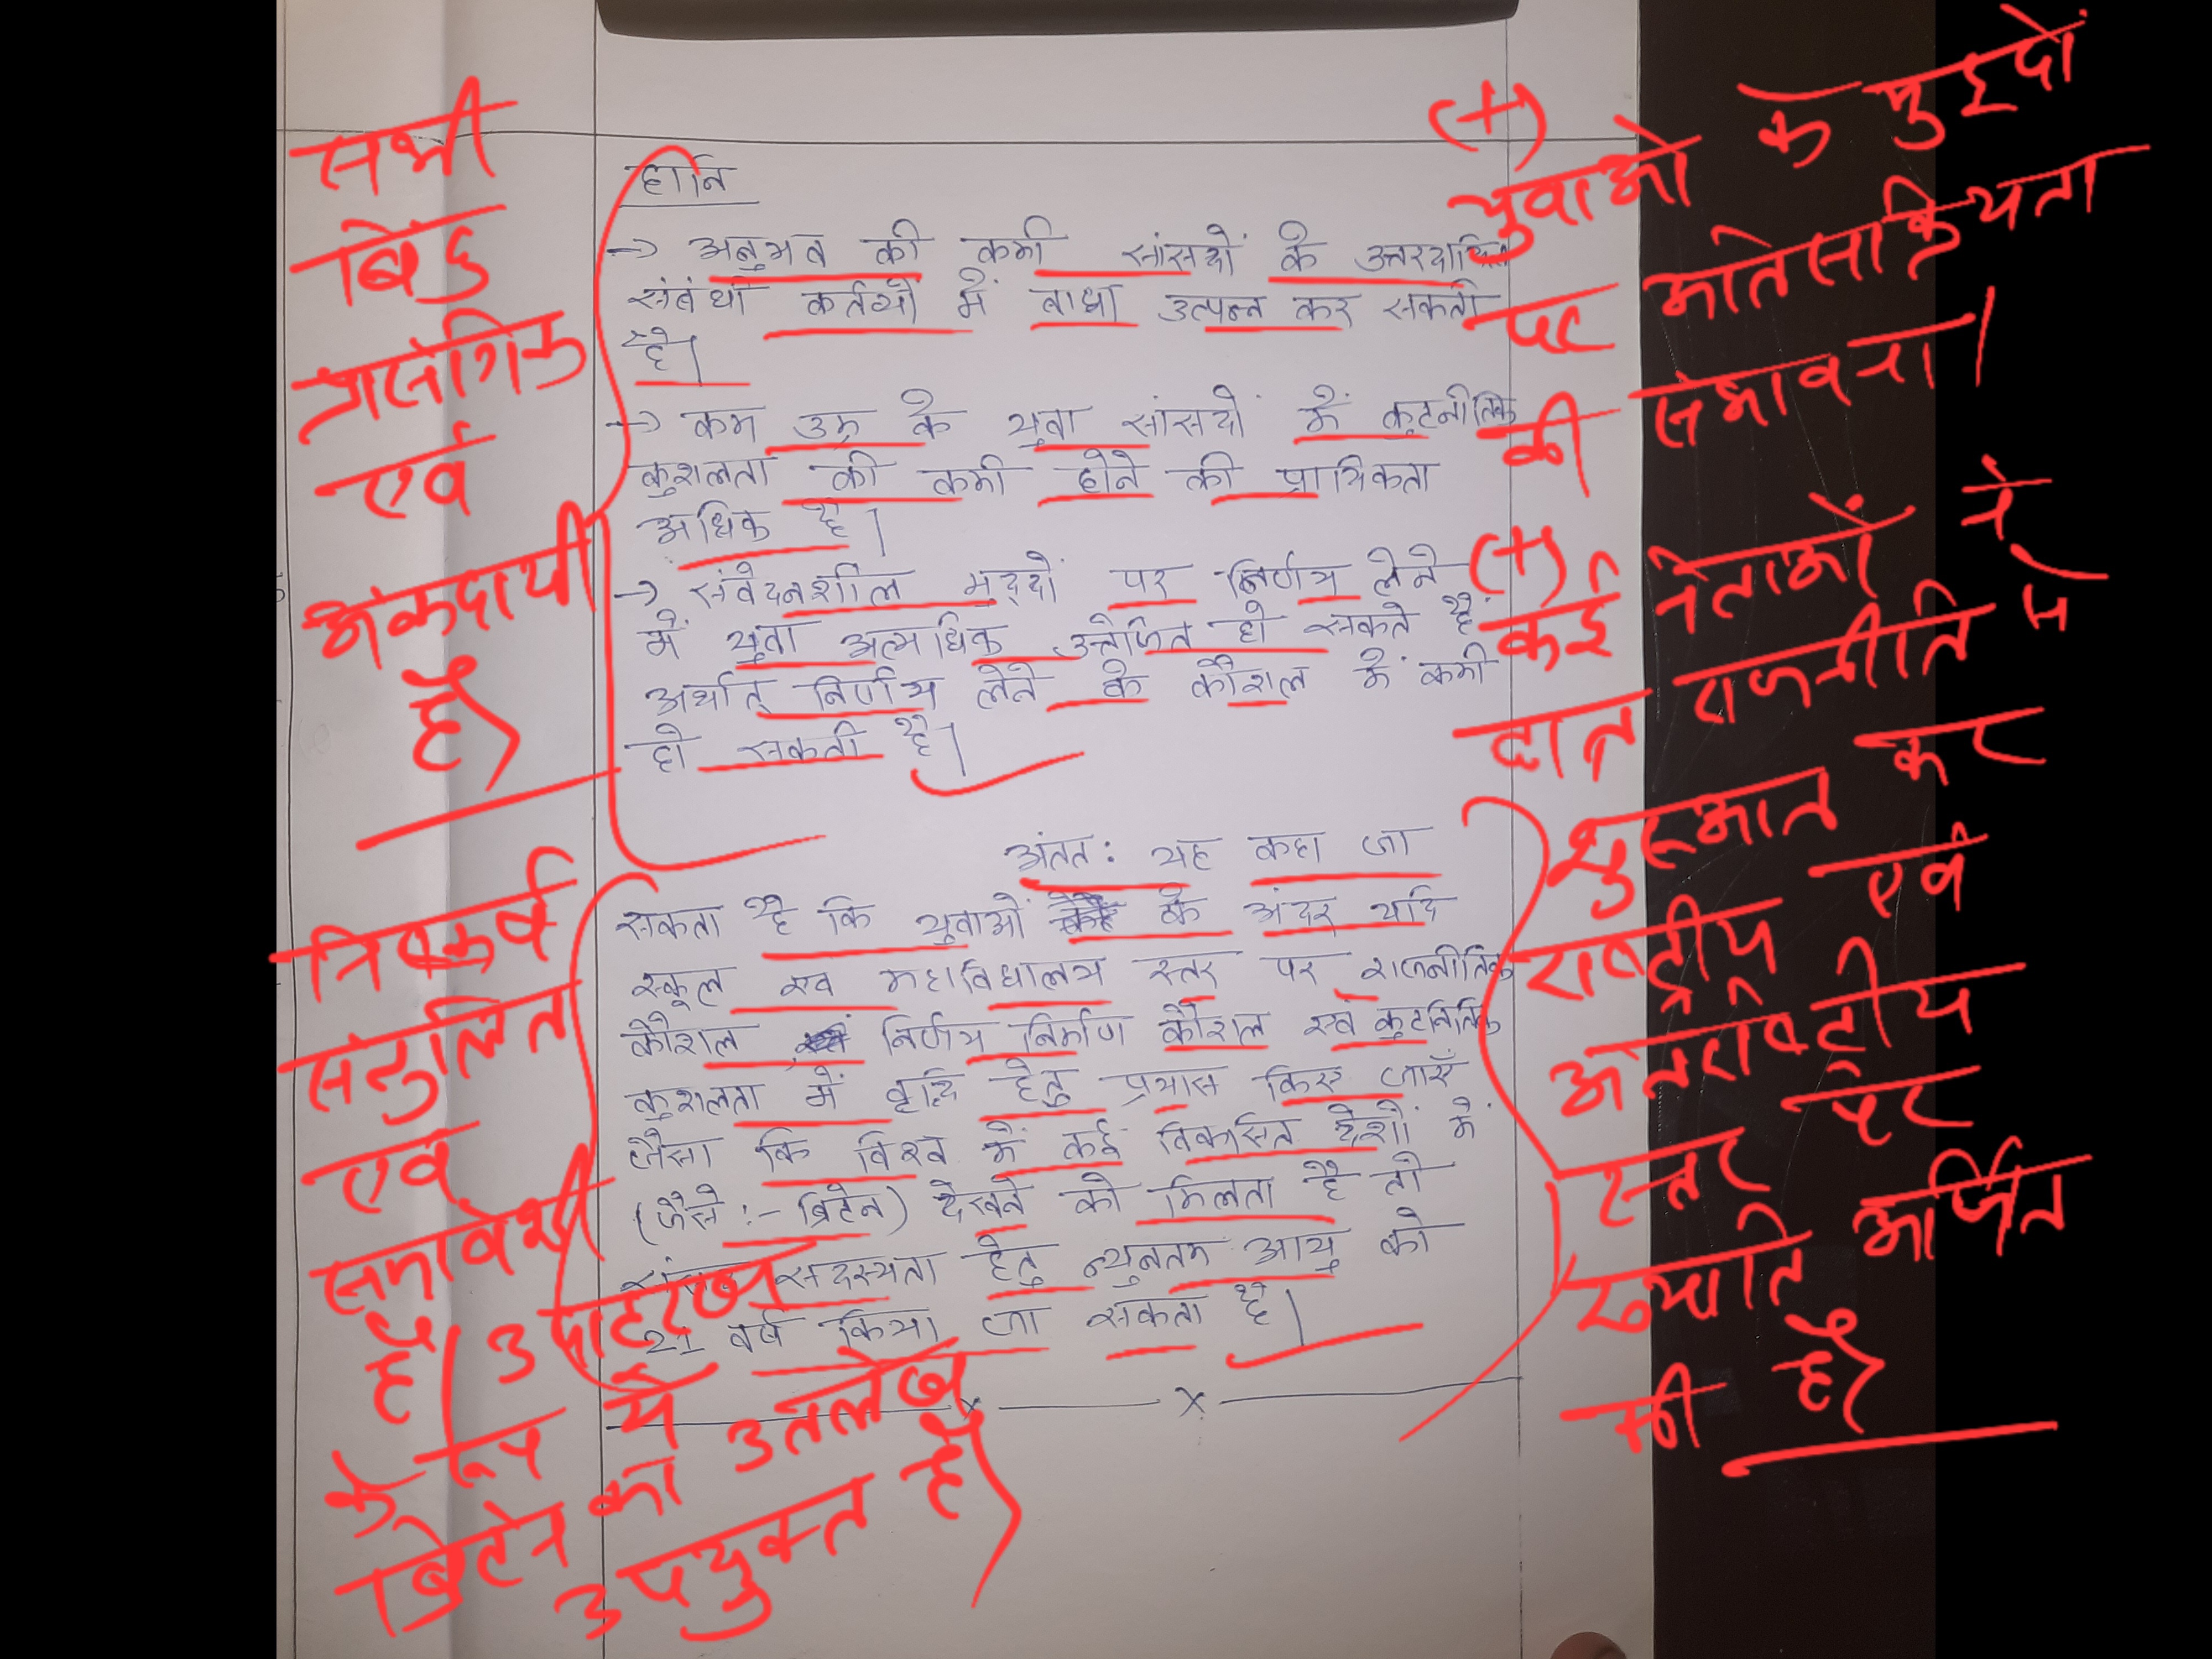 हानि
→ अनुभव की कमी सांसदों के उत्तरदायित्व
संबंधी कर्तव्यों में बाधा उत्पन्न कर सकती
है।
→ कम उम्र के युवा सांसदों में कुटनीतिक
कुशलता की कमी होने की प्रायिकता
अधिक है।
→ संवेदनशील मुद्दों पर निर्णय लेने
में युवा अत्यधिक उत्तेजित हो सकते हैं
अर्थात् निर्णय लेने के कौशल में कमी
हो सकती है।
अंतत: यह कहा जा
सकता है कि युवाओं के अंदर यदि
स्कूल एवं महाविद्यालय स्तर पर राजनीतिक
कौशल निर्णय निर्माण कौशल एवं कुटनितिक
कुशलता में वृद्धि हेतु प्रयास किए जाएँ
जैसा कि विश्व में कई विकसित देशों में
(जैसे :- ब्रिटेन) देखने को मिलता है तो
संसद सदस्यता हेतु न्युनतम आयु को
21 वर्ष किया जा सकता है।
सभी
बिंदु
प्रासंगिक
एवं
अंकदायी
हैं।
निष्कर्ष
संतुलित
एवं
समावेशी
है। उदाहरण
के रूप में
ब्रिटेन का उल्लेख
उपयुक्त है।
(+)
युवाओं के मुद्दों
पर अतिसक्रियता
की संभावना।
(+)
कई नेताओं ने
छात्र राजनीति से
शुरुआत कर
राष्ट्रीय एवं
अंतराष्ट्रीय
स्तर पर
ख्याति अर्जित
की है।